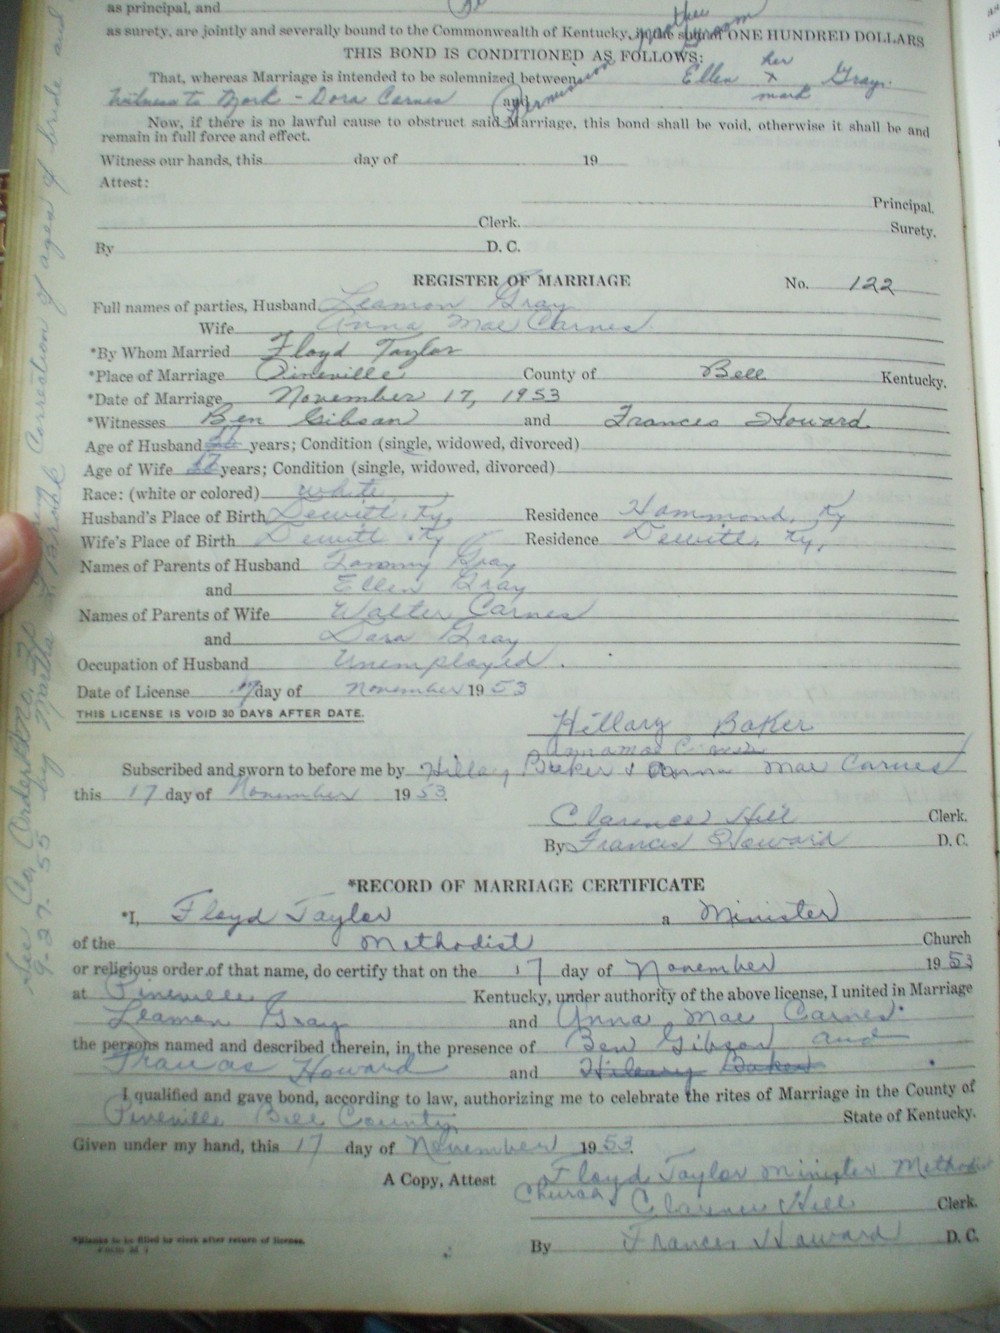 as principal, and
as surety, are jointly and severally bound to the Commonwealth of Kentucky, in the sum of ONE HUNDRED DOLLARS
mother groom
THIS BOND IS CONDITIONED AS FOLLOWS:
That, whereas Marriage is intended to be solemnized between Ellen her x mark Gray.
Witness to Mark - Dora Carnes and Permission
Now, if there is no lawful cause to obstruct said Marriage, this bond shall be void, otherwise it shall be and
remain in full force and effect.
Witness our hands, this day of 19
Attest:
Principal.
Clerk. Surety.
By D. C.
REGISTER OF MARRIAGE No. 122
Full names of parties, Husband Leamon Gray
Wife Anna Mae Carnes
*By Whom Married Floyd Taylor
*Place of Marriage Pineville County of Bell Kentucky.
*Date of Marriage November 17, 1953
*Witnesses Ben Gibson and Frances Howard
Age of Husband years; Condition (single, widowed, divorced)
Age of Wife years; Condition (single, widowed, divorced)
Race: (white or colored) white
Husband's Place of Birth Dewitt, Ky, Residence Hammond, Ky
Wife's Place of Birth Dewitt, Ky Residence Dewitt, Ky,
Names of Parents of Husband Tommy Gray
and Ellen Gray
Names of Parents of Wife Walter Carnes
and Dora Gray
Occupation of Husband Unemployed.
Date of License 17 day of November 1953
THIS LICENSE IS VOID 30 DAYS AFTER DATE.
Hillary Baker
Subscribed and sworn to before me by Hillary Baker & Anna Mae Carnes
this 17 day of November 1953.
Clarence Hill Clerk.
By Frances Howard D. C.
*RECORD OF MARRIAGE CERTIFICATE
*I, Floyd Taylor a Minister
of the Methodist Church
or religious order of that name, do certify that on the 17 day of November 1953
at Pineville Kentucky, under authority of the above license, I united in Marriage
Leamon Gray and Anna Mae Carnes.
the persons named and described therein, in the presence of Ben Gibson and
Frances Howard and Hileary Baker
I qualified and gave bond, according to law, authorizing me to celebrate the rites of Marriage in the County of
Pineville Bell County State of Kentucky.
Given under my hand, this 17 day of November 1953.
A Copy, Attest Floyd Taylor Minister Methodist
Church
Clarence Hill Clerk.
*Blanks to be filled by clerk after return of license.
By Frances Howard D. C.
correction of ages of bride and
9-27-55 by Martha